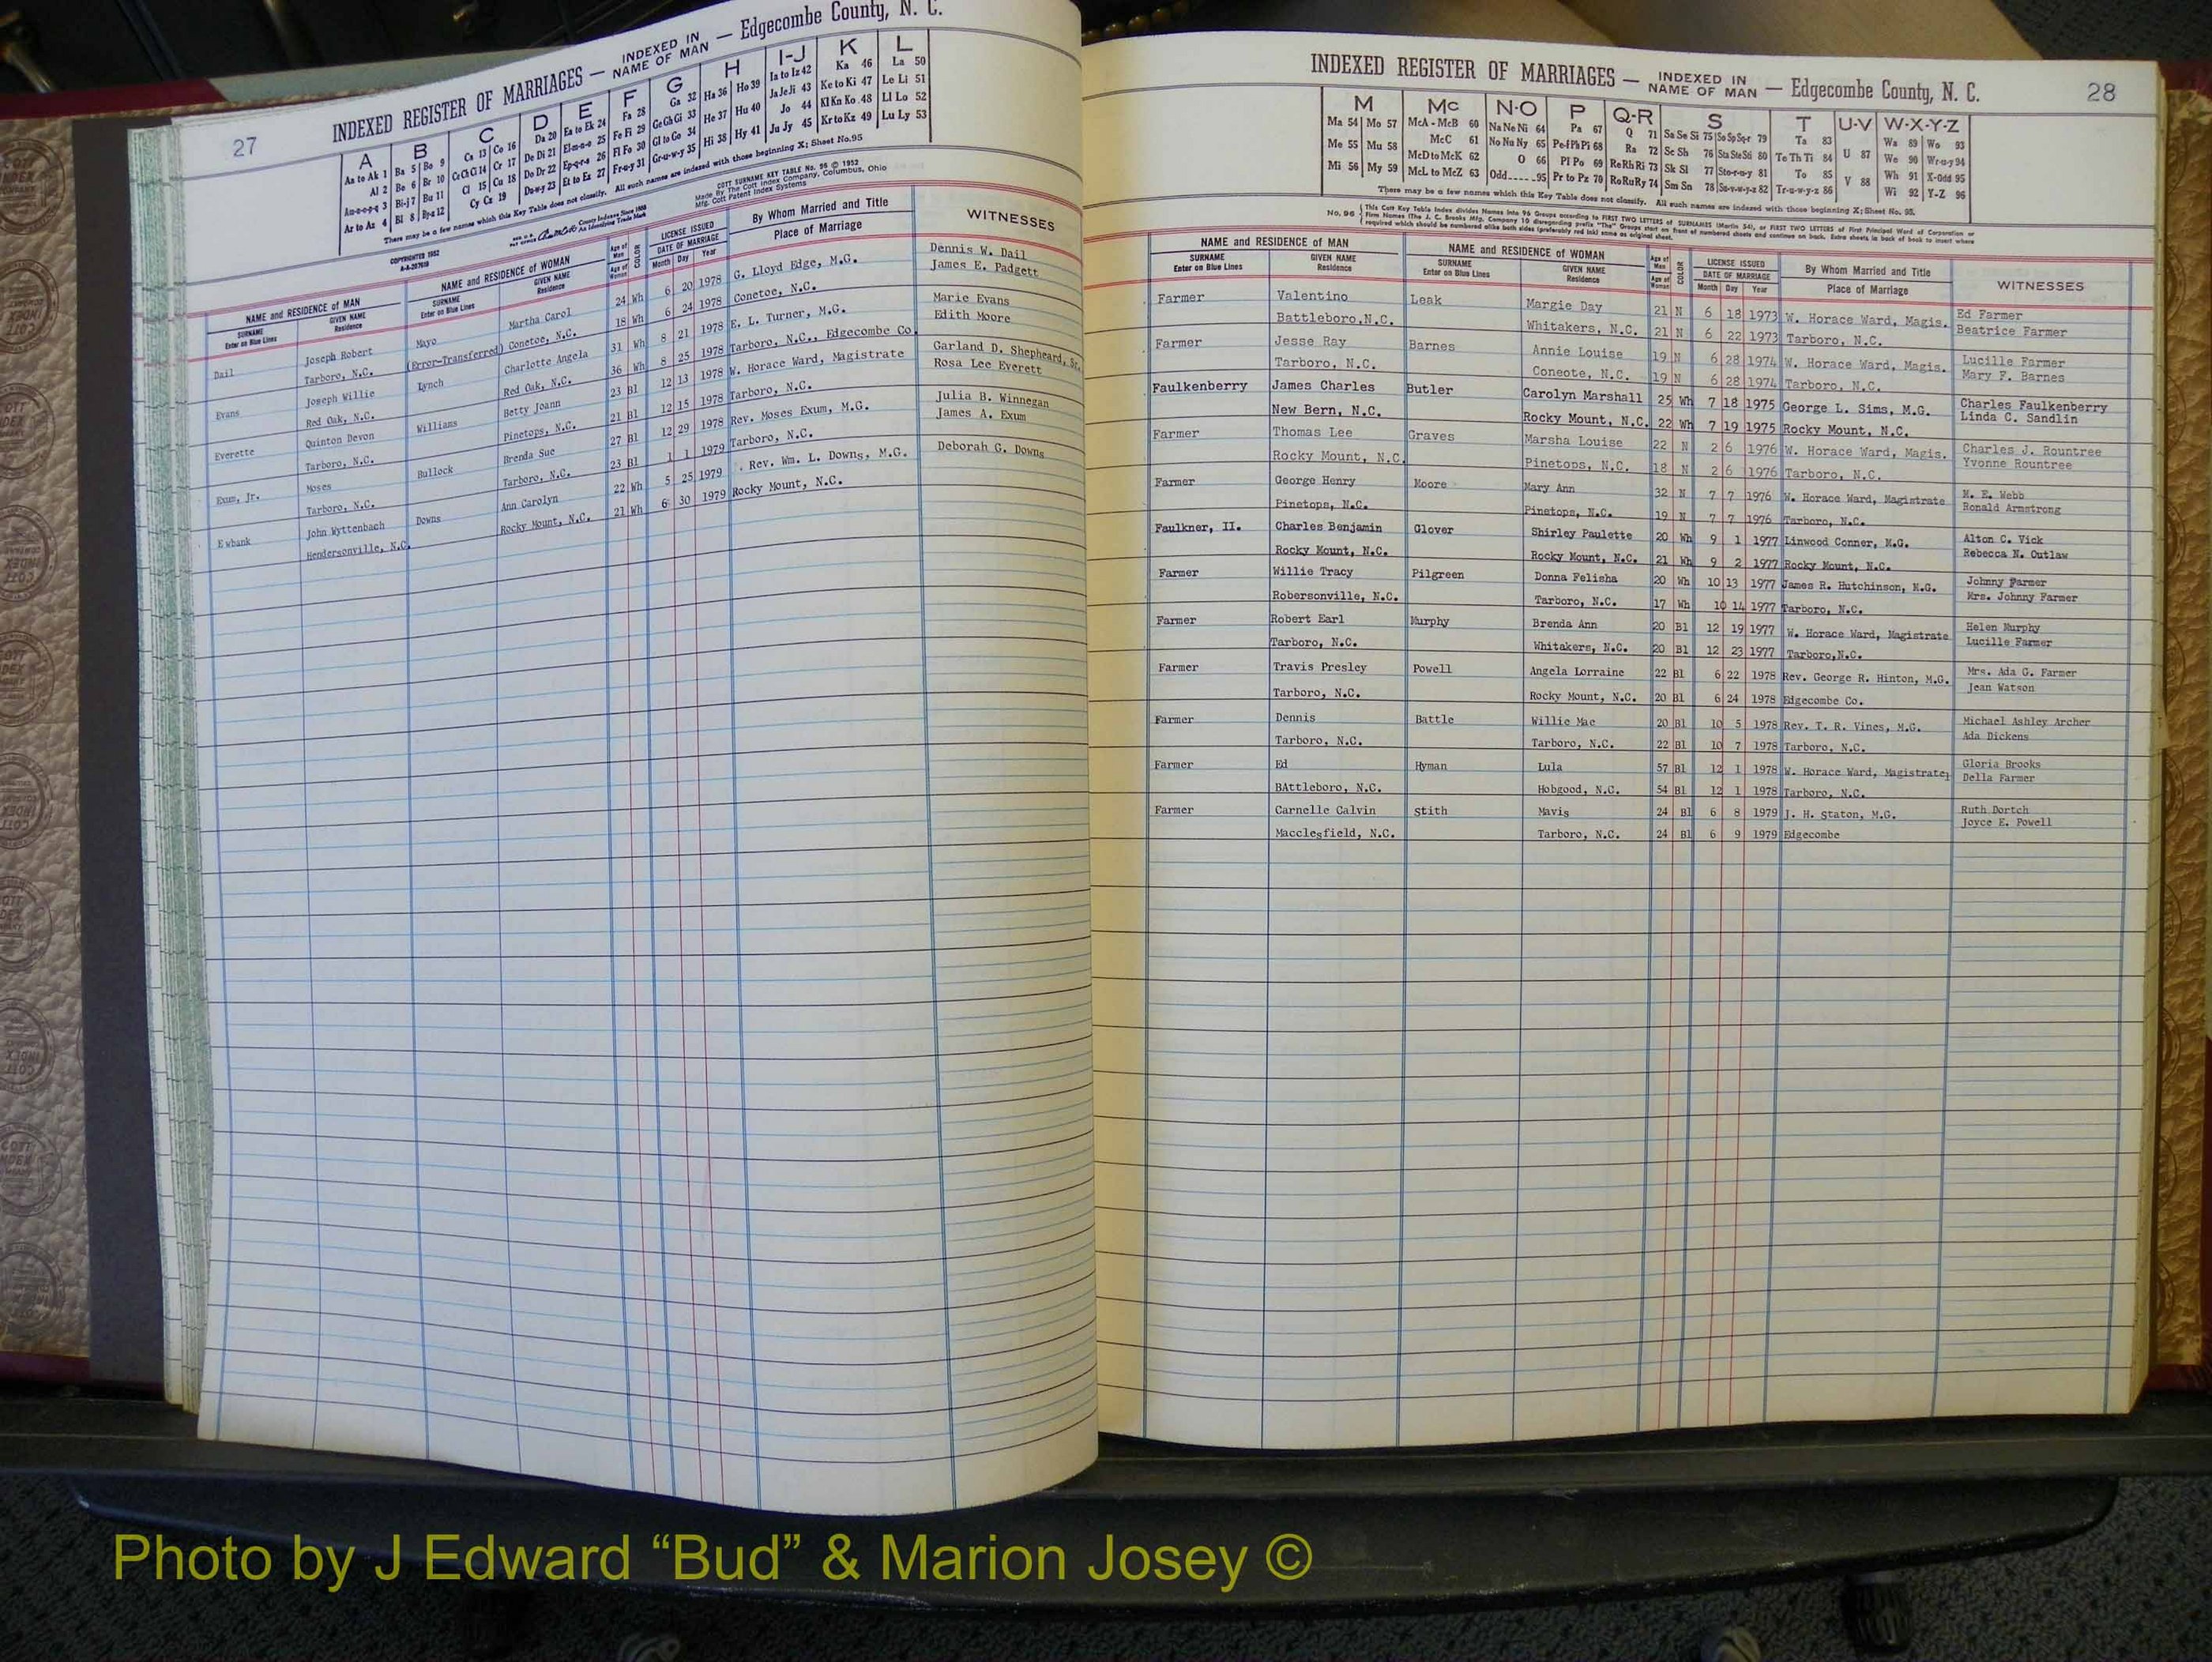 27
INDEXED REGISTER OF MARRIAGES — INDEXED IN NAME OF MAN — Edgecombe County, N. C.
A B C D E F G H I-J K L
Aa to Ak 1 Ba 5 Bo 9 Ca 13 Co 16 Da 20 Ea to Ek 24 Fa 28 Ga 32 Ha 36 Ho 39 Ia to Iz 42 Ka 46 La 50
Al 2 Be 6 Br 10 Ce Ch Ci 14 Cr 17 De Di 21 El-m-n-o 25 Fe Fi 29 Ge Gh Gi 33 He 37 Hu 40 Ja Je Ji 43 Ke to Ki 47 Le Li 51
Am-n-o-p-q 3 Bi-j 7 Bu 11 Cl 15 Cu 18 Do Dr 22 Ep-q-r-s 26 Fl Fo 30 Gl to Go 34 Hi 38 Hy 41 Jo 44 Kl Kn Ko 48 Ll Lo 52
Ar to Az 4 Bl 8 By-z 12 Cy Cz 19 Du-w-y 23 Et to Ez 27 Fr-u-y 31 Gr-u-w-y 35 Ju Jy 45 Kr to Kz 49 Lu Ly 53
There may be a few names which this Key Table does not classify. All such names are indexed with those beginning X; Sheet No. 95
COPYRIGHTED 1952
COTT SURNAME KEY TABLE No. 96 © 1952
Made By The Cott Index Company, Columbus, Ohio
Mfg. Cott Patent Index Systems
NAME and RESIDENCE OF MAN NAME and RESIDENCE OF WOMAN Age of Man COLOR LICENSE ISSUED By Whom Married and Title WITNESSES
SURNAME GIVEN NAME SURNAME GIVEN NAME Age of Woman DATE OF MARRIAGE Place of Marriage
Enter on Blue Lines Residence Enter on Blue Lines Residence Month Day Year
Dail Joseph Robert Mayo Martha Carol 24 Wh 6 20 1978 G. Lloyd Edge, M.G. Dennis W. Dail
Tarboro, N.C. (Error-Transferred) Conetoe, N.C. 18 Wh 6 24 1978 Conetoe, N.C. James E. Padgett
Evans Joseph Willie Lynch Charlotte Angela 31 Wh 8 21 1978 E. L. Turner, M.G. Marie Evans
Red Oak, N.C. Red Oak, N.C. 36 Wh 8 25 1978 Tarboro, N.C., Edgecombe Co. Edith Moore
Everette Quinton Devon Williams Betty Joann 23 Bl 12 13 1978 W. Horace Ward, Magistrate Garland D. Shepheard, Sr.
Tarboro, N.C. Pinetops, N.C. 21 Bl 12 15 1978 Tarboro, N.C. Rosa Lee Everett
Exum, Jr. Moses Bullock Brenda Sue 27 Bl 12 29 1978 Rev. Moses Exum, M.G. Julia B. Winnegan
Tarboro, N.C. Tarboro, N.C. 23 Bl 1 1 1979 Tarboro, N.C. James A. Exum
Ewbank John Wyttenbach Downs Ann Carolyn 22 Wh 5 25 1979 Rev. Wm. L. Downs, M.G. Deborah G. Downs
Hendersonville, N.C. Rocky Mount, N.C. 21 Wh 6 30 1979 Rocky Mount, N.C.
INDEXED REGISTER OF MARRIAGES — INDEXED IN NAME OF MAN — Edgecombe County, N. C. 28
M Mc N-O P Q-R S T U-V W-X-Y-Z
Ma 54 Mo 57 McA - McB 60 Na Ne Ni 64 Pa 67 Q 71 Sa Se Si 75 So Sp Sq-r 79 Ta 83 U 87 Wa 89 Wo 93
Me 55 Mu 58 McC 61 No Nu Ny 65 Pe-f Ph Pi 68 Ra 72 Sc Sh 76 Sta Ste Sti 80 Te Th Ti 84 V 88 We 90 Wr-u-y 94
Mi 56 My 59 McD to McK 62 O 66 Pl Po 69 Re Rh Ri 73 Sk Sl 77 Sto-r-u-y 81 To 85 Wh 91 X-Odd 95
McL to McZ 63 Odd 95 Pr to Pz 70 Ro Ru Ry 74 Sm Sn 78 Su-v-w-y-z 82 Tr-u-w-y-z 86 Wi 92 Y-Z 96
There may be a few names which this Key Table does not classify. All such names are indexed with those beginning X; Sheet No. 95.
No. 96 This Cott Key Table Index divides Names into 96 Groups according to FIRST TWO LETTERS of SURNAMES (Martin 54), or FIRST TWO LETTERS of First Principal Word of Corporation or
Firm Names (The J. C. Brooks Mfg. Company 10 disregarding prefix "The" Groups start on front of numbered sheets and continue on back. Extra sheets in back of book to insert where
required which should be numbered alike both sides (preferably red ink) same as original sheet.
NAME and RESIDENCE OF MAN NAME and RESIDENCE OF WOMAN Age of Man COLOR LICENSE ISSUED By Whom Married and Title WITNESSES
SURNAME GIVEN NAME SURNAME GIVEN NAME Age of Woman DATE OF MARRIAGE Place of Marriage
Enter on Blue Lines Residence Enter on Blue Lines Residence Month Day Year
Farmer Valentino Leak Margie Day 21 N 6 18 1973 W. Horace Ward, Magis. Ed Farmer
Battleboro,N.C. Whitakers, N.C. 21 N 6 22 1973 Tarboro, N.C. Beatrice Farmer
Farmer Jesse Ray Barnes Annie Louise 19 N 6 28 1974 W. Horace Ward, Magis. Lucille Farmer
Tarboro, N.C. Coneote, N.C. 19 N 6 28 1974 Tarboro, N.C. Mary F. Barnes
Faulkenberry James Charles Butler Carolyn Marshall 25 Wh 7 18 1975 George L. Sims, M.G. Charles Faulkenberry
New Bern, N.C. Rocky Mount, N.C. 22 Wh 7 19 1975 Rocky Mount, N.C. Linda C. Sandlin
Farmer Thomas Lee Graves Marsha Louise 22 N 2 6 1976 W. Horace Ward, Magis. Charles J. Rountree
Rocky Mount, N.C. Pinetops, N.C. 18 N 2 6 1976 Tarboro, N.C. Yvonne Rountree
Farmer George Henry Moore Mary Ann 32 N 7 7 1976 W. Horace Ward, Magistrate M. E. Webb
Pinetops, N.C. Pinetops, N.C. 19 N 7 7 1976 Tarboro, N.C. Ronald Armstrong
Faulkner, II. Charles Benjamin Glover Shirley Paulette 20 Wh 9 1 1977 Linwood Conner, M.G. Alton C. Vick
Rocky Mount, N.C. Rocky Mount, N.C. 21 Wh 9 2 1977 Rocky Mount, N.C. Rebecca N. Outlaw
Farmer Willie Tracy Pilgreen Donna Felisha 20 Wh 10 13 1977 James R. Hutchinson, M.G. Johnny Farmer
Robersonville, N.C. Tarboro, N.C. 17 Wh 10 14 1977 Tarboro, N.C. Mrs. Johnny Farmer
Farmer Robert Earl Murphy Brenda Ann 20 Bl 12 19 1977 W. Horace Ward, Magistrate Helen Murphy
Tarboro, N.C. Whitakers, N.C. 20 Bl 12 23 1977 Tarboro,N.C. Lucille Farmer
Farmer Travis Presley Powell Angela Lorraine 22 Bl 6 22 1978 Rev. George R. Hinton, M.G. Mrs. Ada G. Farmer
Tarboro, N.C. Rocky Mount, N.C. 20 Bl 6 24 1978 Edgecombe Co. Jean Watson
Farmer Dennis Battle Willie Mae 20 Bl 10 5 1978 Rev. T. R. Vines, M.G. Michael Ashley Archer
Tarboro, N.C. Tarboro, N.C. 22 Bl 10 7 1978 Tarboro, N.C. Ada Dickens
Farmer Ed Hyman Lula 57 Bl 12 1 1978 W. Horace Ward, Magistrate Gloria Brooks
BAttleboro, N.C. Hobgood, N.C. 54 Bl 12 1 1978 Tarboro, N.C. Della Farmer
Farmer Carnelle Calvin Stith Mavis 24 Bl 6 8 1979 J. H. Staton, M.G. Ruth Dortch
Macclesfield, N.C. Tarboro, N.C. 24 Bl 6 9 1979 Edgecombe Joyce E. Powell
Photo by J Edward “Bud” & Marion Josey ©